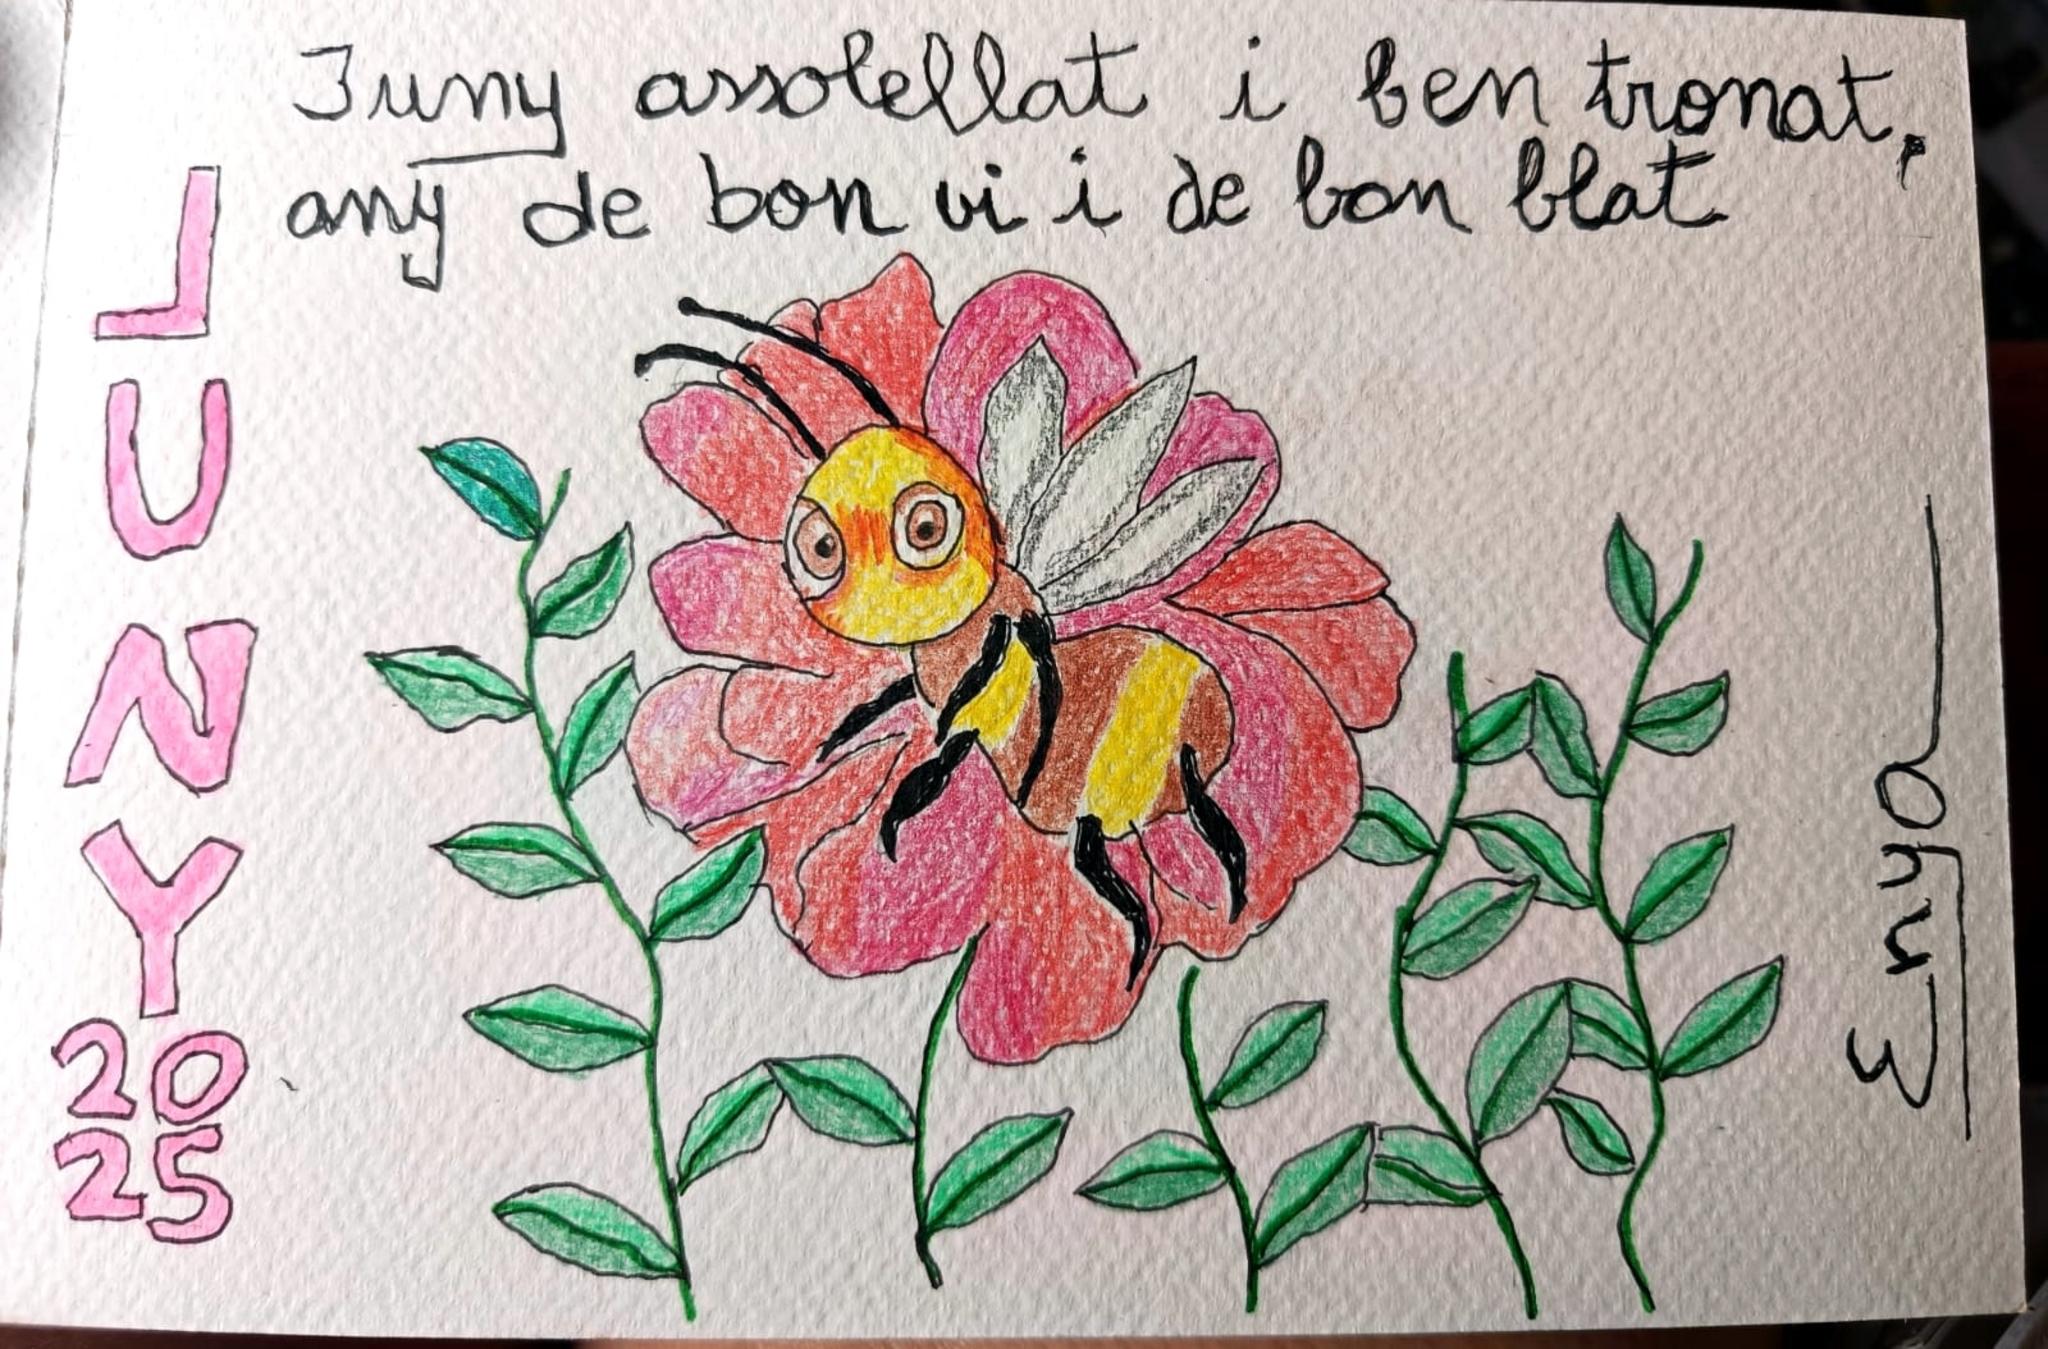 Juny assolellat i ben tronat,
any de bon vi i de bon blat
JUNY
20
25
Enya